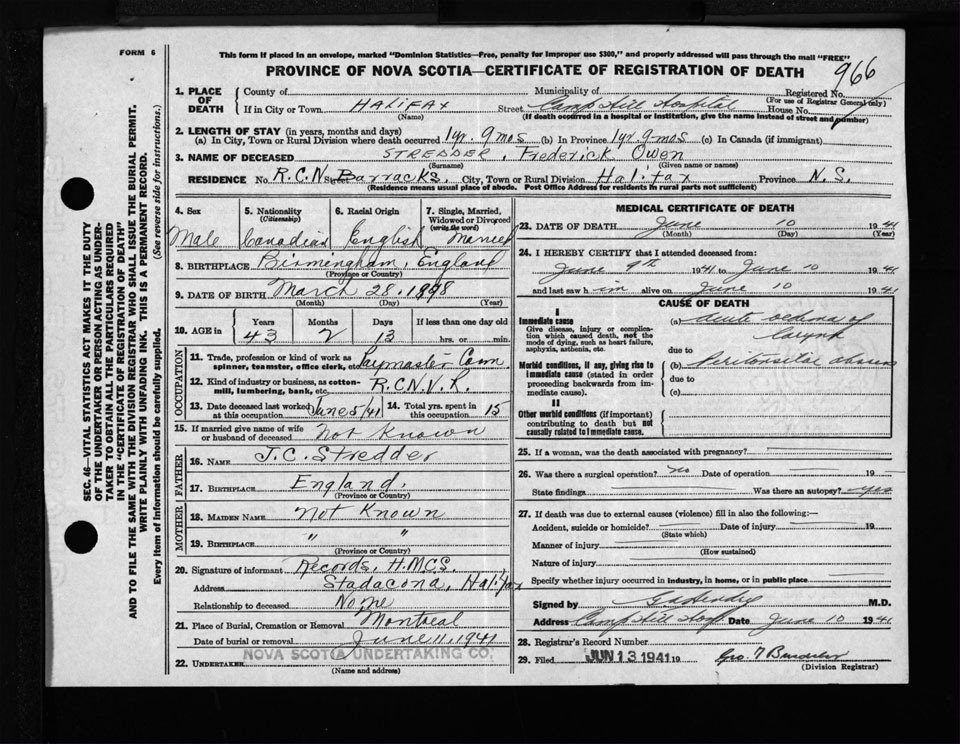 FORM 6
This form if placed in an envelope, marked "Dominion Statistics—Free, penalty for improper use $300," and properly addressed will pass through the mail "FREE"
PROVINCE OF NOVA SCOTIA—CERTIFICATE OF REGISTRATION OF DEATH
966
1. PLACE OF DEATH
County of
Municipality of
Registered No.
(For use of Registrar General only)
If in City or Town HALIFAX Street Camp Hill Hospital House No.
(Name) (If death occurred in a hospital or institution, give the name instead of street and number)
2. LENGTH OF STAY (in years, months and days)
(a) In City, Town or Rural Division where death occurred 1 yr. 9 mos (b) In Province 1 yr. 9 mos (c) In Canada (if immigrant)
3. NAME OF DECEASED STREDDER, Frederick Owen
(Surname) (Given name or names)
RESIDENCE No. R.C.N Street Barracks. City, Town or Rural Division Halifax Province N.S.
(Residence means usual place of abode. Post Office Address for residents in rural parts not sufficient)
4. Sex 5. Nationality (Citizenship) 6. Racial Origin 7. Single, Married, Widowed or Divorced (write the word)
Male Canadian English Married
8. BIRTHPLACE Birmingham, England
(Province or Country)
9. DATE OF BIRTH March 28. 1898
(Month) (Day) (Year)
10. AGE in Years Months Days If less than one day old
43 2 13 hrs. or min.
OCCUPATION
11. Trade, profession or kind of work as spinner, teamster, office clerk, etc. Paymaster Com
12. Kind of industry or business, as cotton-mill, lumbering, bank, etc. R.C.N.V.R.
13. Date deceased last worked at this occupation June 5/41 14. Total yrs. spent in this occupation 15
15. If married give name of wife or husband of deceased Not Known
FATHER
16. NAME J. C. Stredder
17. BIRTHPLACE England.
(Province or Country)
MOTHER
18. MAIDEN NAME Not Known
19. BIRTHPLACE " "
(Province or Country)
20. Signature of informant Records, H.M.C.S.
Address Stadacona, Halifax
Relationship to deceased None
21. Place of Burial, Cremation or Removal Montreal
Date of burial or removal June 11, 1941
22. UNDERTAKER NOVA SCOTIA UNDERTAKING CO.
(Name and address)
MEDICAL CERTIFICATE OF DEATH
23. DATE OF DEATH June 10 1941
(Month) (Day) (Year)
24. I HEREBY CERTIFY that I attended deceased from:
June 9th 1941 to June 10 1941
and last saw h im alive on June 10 1941
CAUSE OF DEATH
I
Immediate cause
Give disease, injury or complication which caused death, not the mode of dying, such as heart failure, asphyxia, asthenia, etc.
(a) Acute oedema of
larynx
due to
Morbid conditions, if any, giving rise to immediate cause (stated in order proceeding backwards from immediate cause).
(b) Peritonsillar abscess
due to
(c)
II
Other morbid conditions (if important) contributing to death but not causally related to immediate cause.
25. If a woman, was the death associated with pregnancy?
26. Was there a surgical operation? no Date of operation 19
State findings Was there an autopsy? yes
27. If death was due to external causes (violence) fill in also the following:—
Accident, suicide or homicide? Date of injury 19
(State which)
Manner of injury
(How sustained)
Nature of injury
Specify whether injury occurred in industry, in home, or in public place
Signed by M.D.
Address Camp Hill Hosp. Date June 10 1941
28. Registrar's Record Number
29. Filed JUN 13 1941 19 Geo. T
(Division Registrar)
SEC. 46—VITAL STATISTICS ACT MAKES IT THE DUTY
OF THE UNDERTAKER OR PERSON ACTING AS UNDER-
TAKER TO OBTAIN ALL THE PARTICULARS REQUIRED
IN THE "CERTIFICATE OF REGISTRATION OF DEATH"
AND TO FILE THE SAME WITH THE DIVISION REGISTRAR WHO SHALL ISSUE THE BURIAL PERMIT.
WRITE PLAINLY WITH UNFADING INK. THIS IS A PERMANENT RECORD.
Every item of Information should be carefully supplied. (See reverse side for instructions.)